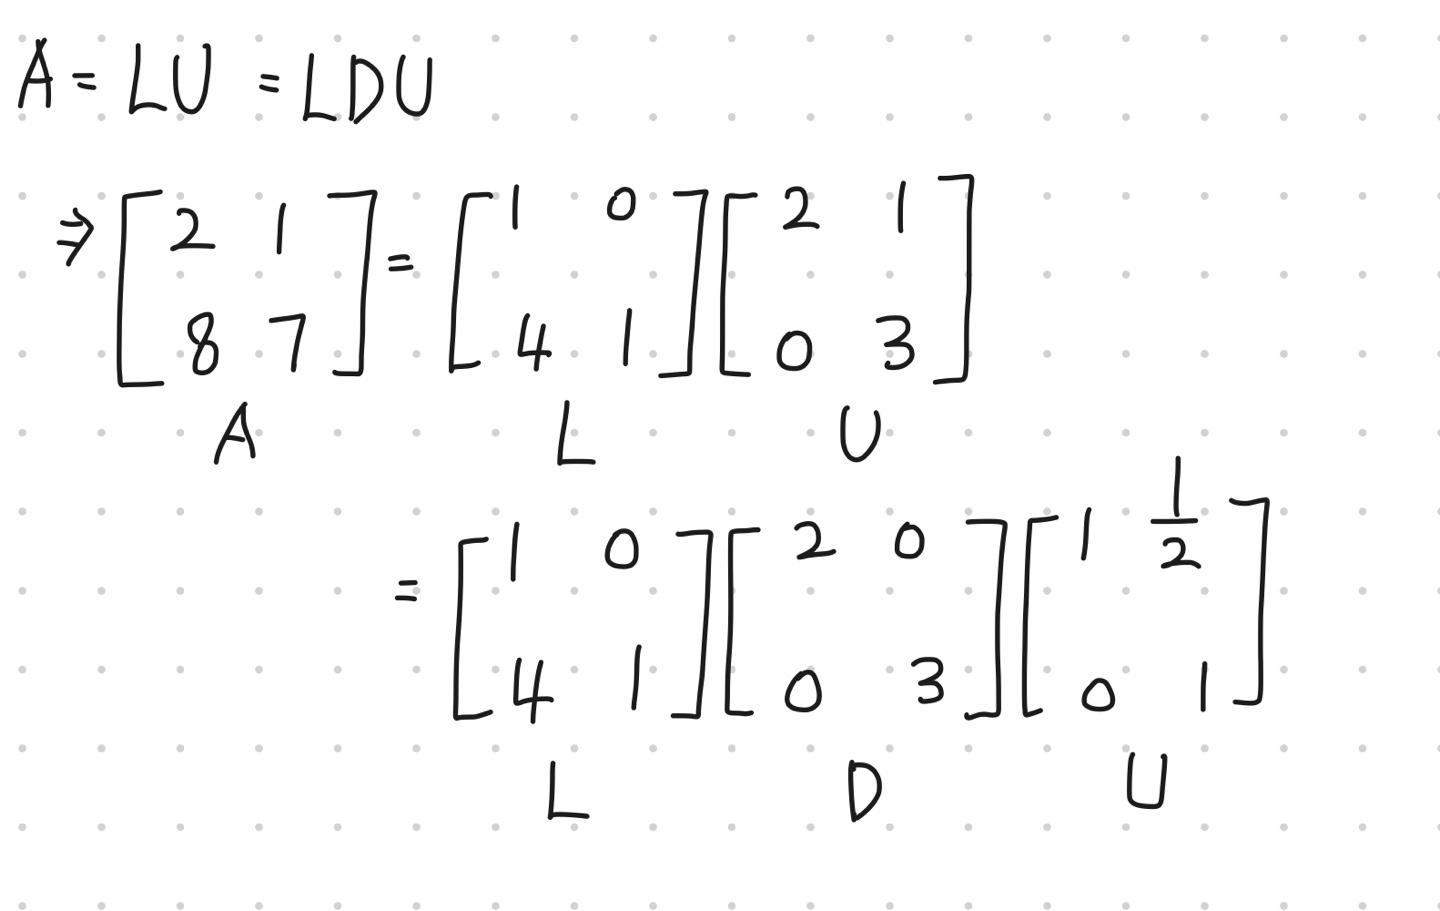 A = LU = LDU
⇒ [2 1; 8 7] = [1 0; 4 1] [2 1; 0 3]
A L U
= [1 0; 4 1] [2 0; 0 3] [1 1/2; 0 1]
L D U